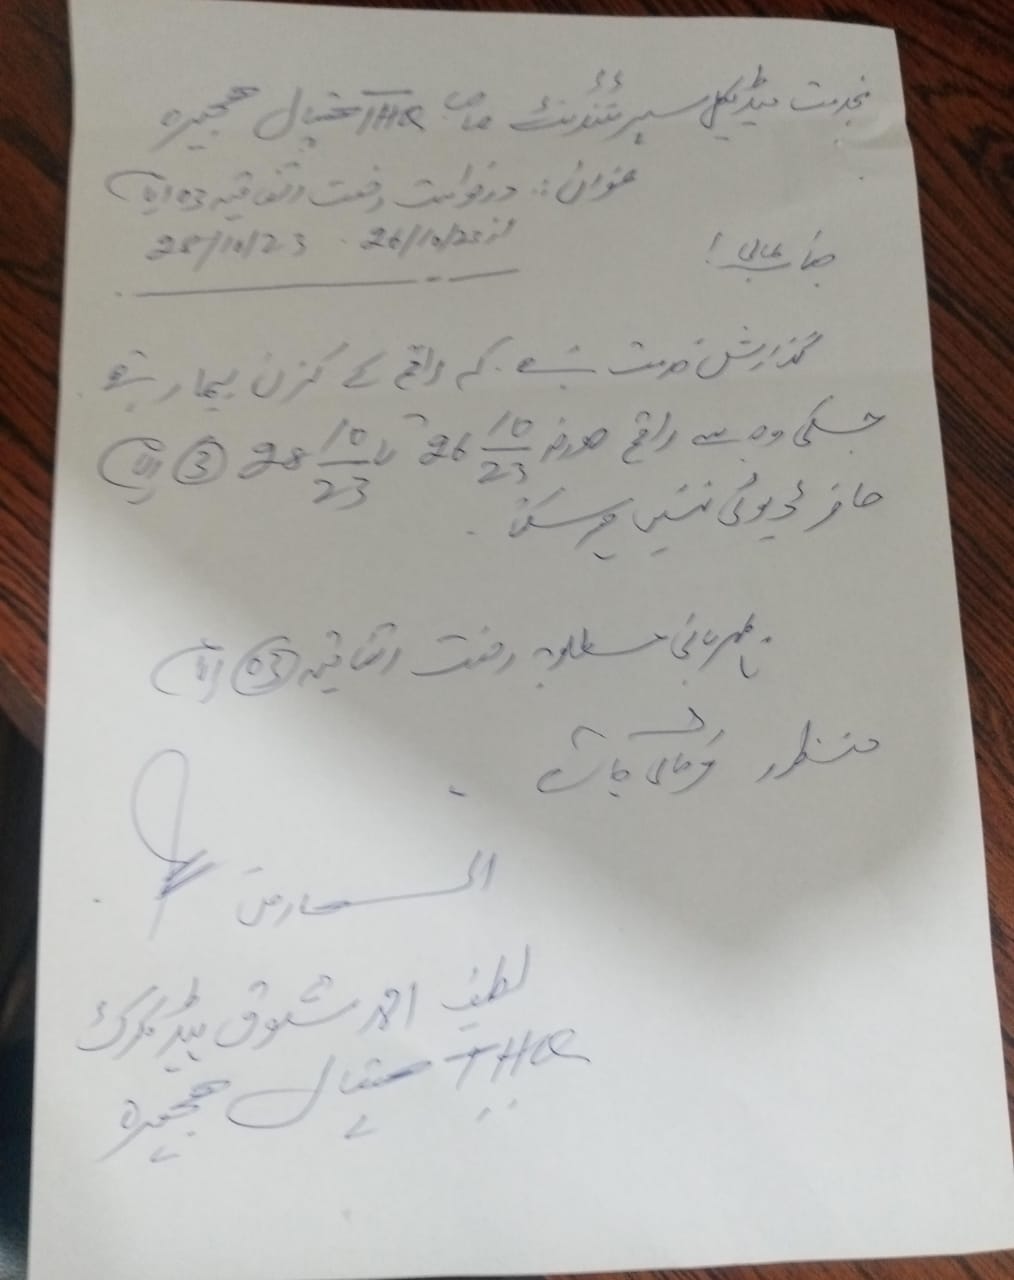 بخدمت میڈیکل سپرنٹنڈنٹ صاحب THQ ہسپتال ہجیرہ
عنوان :۔ درخواست رخصت اتفاقیہ 03 ایام
از 26/10/23 - 28/10/23
جناب عالی !
گذارش خدمت ہے۔ کہ راقم کے کزن بیمار ہے
جسکی وجہ سے راقم مورخہ 26 10/23 تا 28 10/23 (3) ایام
حاضر ڈیوٹی نہیں ہو سکتا۔
مہربانی مطلوبہ رخصت اتفاقیہ (03) ایام
منظور فرمائی جائے۔
العارض
لطیف احمد شوق ہیڈ کلرک
THQ ہسپتال ہجیرہ